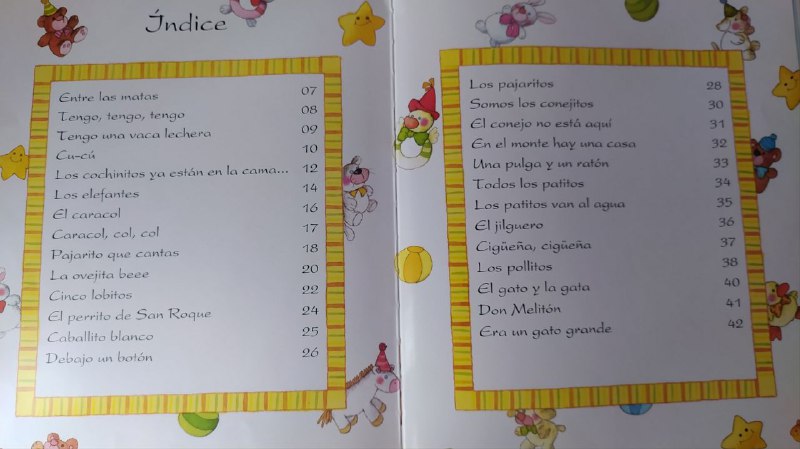 Índice
Entre las matas 07
Tengo, tengo, tengo 08
Tengo una vaca lechera 09
Cu-cú 10
Los cochinitos ya están en la cama... 12
Los elefantes 14
El caracol 16
Caracol, col, col 17
Pajarito que cantas 18
La ovejita beee 20
Cinco lobitos 22
El perrito de San Roque 24
Caballito blanco 25
Debajo un botón 26
Los pajaritos 28
Somos los conejitos 30
El conejo no está aquí 31
En el monte hay una casa 32
Una pulga y un ratón 33
Todos los patitos 34
Los patitos van al agua 35
El jilguero 36
Cigüeña, cigüeña 37
Los pollitos 38
El gato y la gata 40
Don Melitón 41
Era un gato grande 42